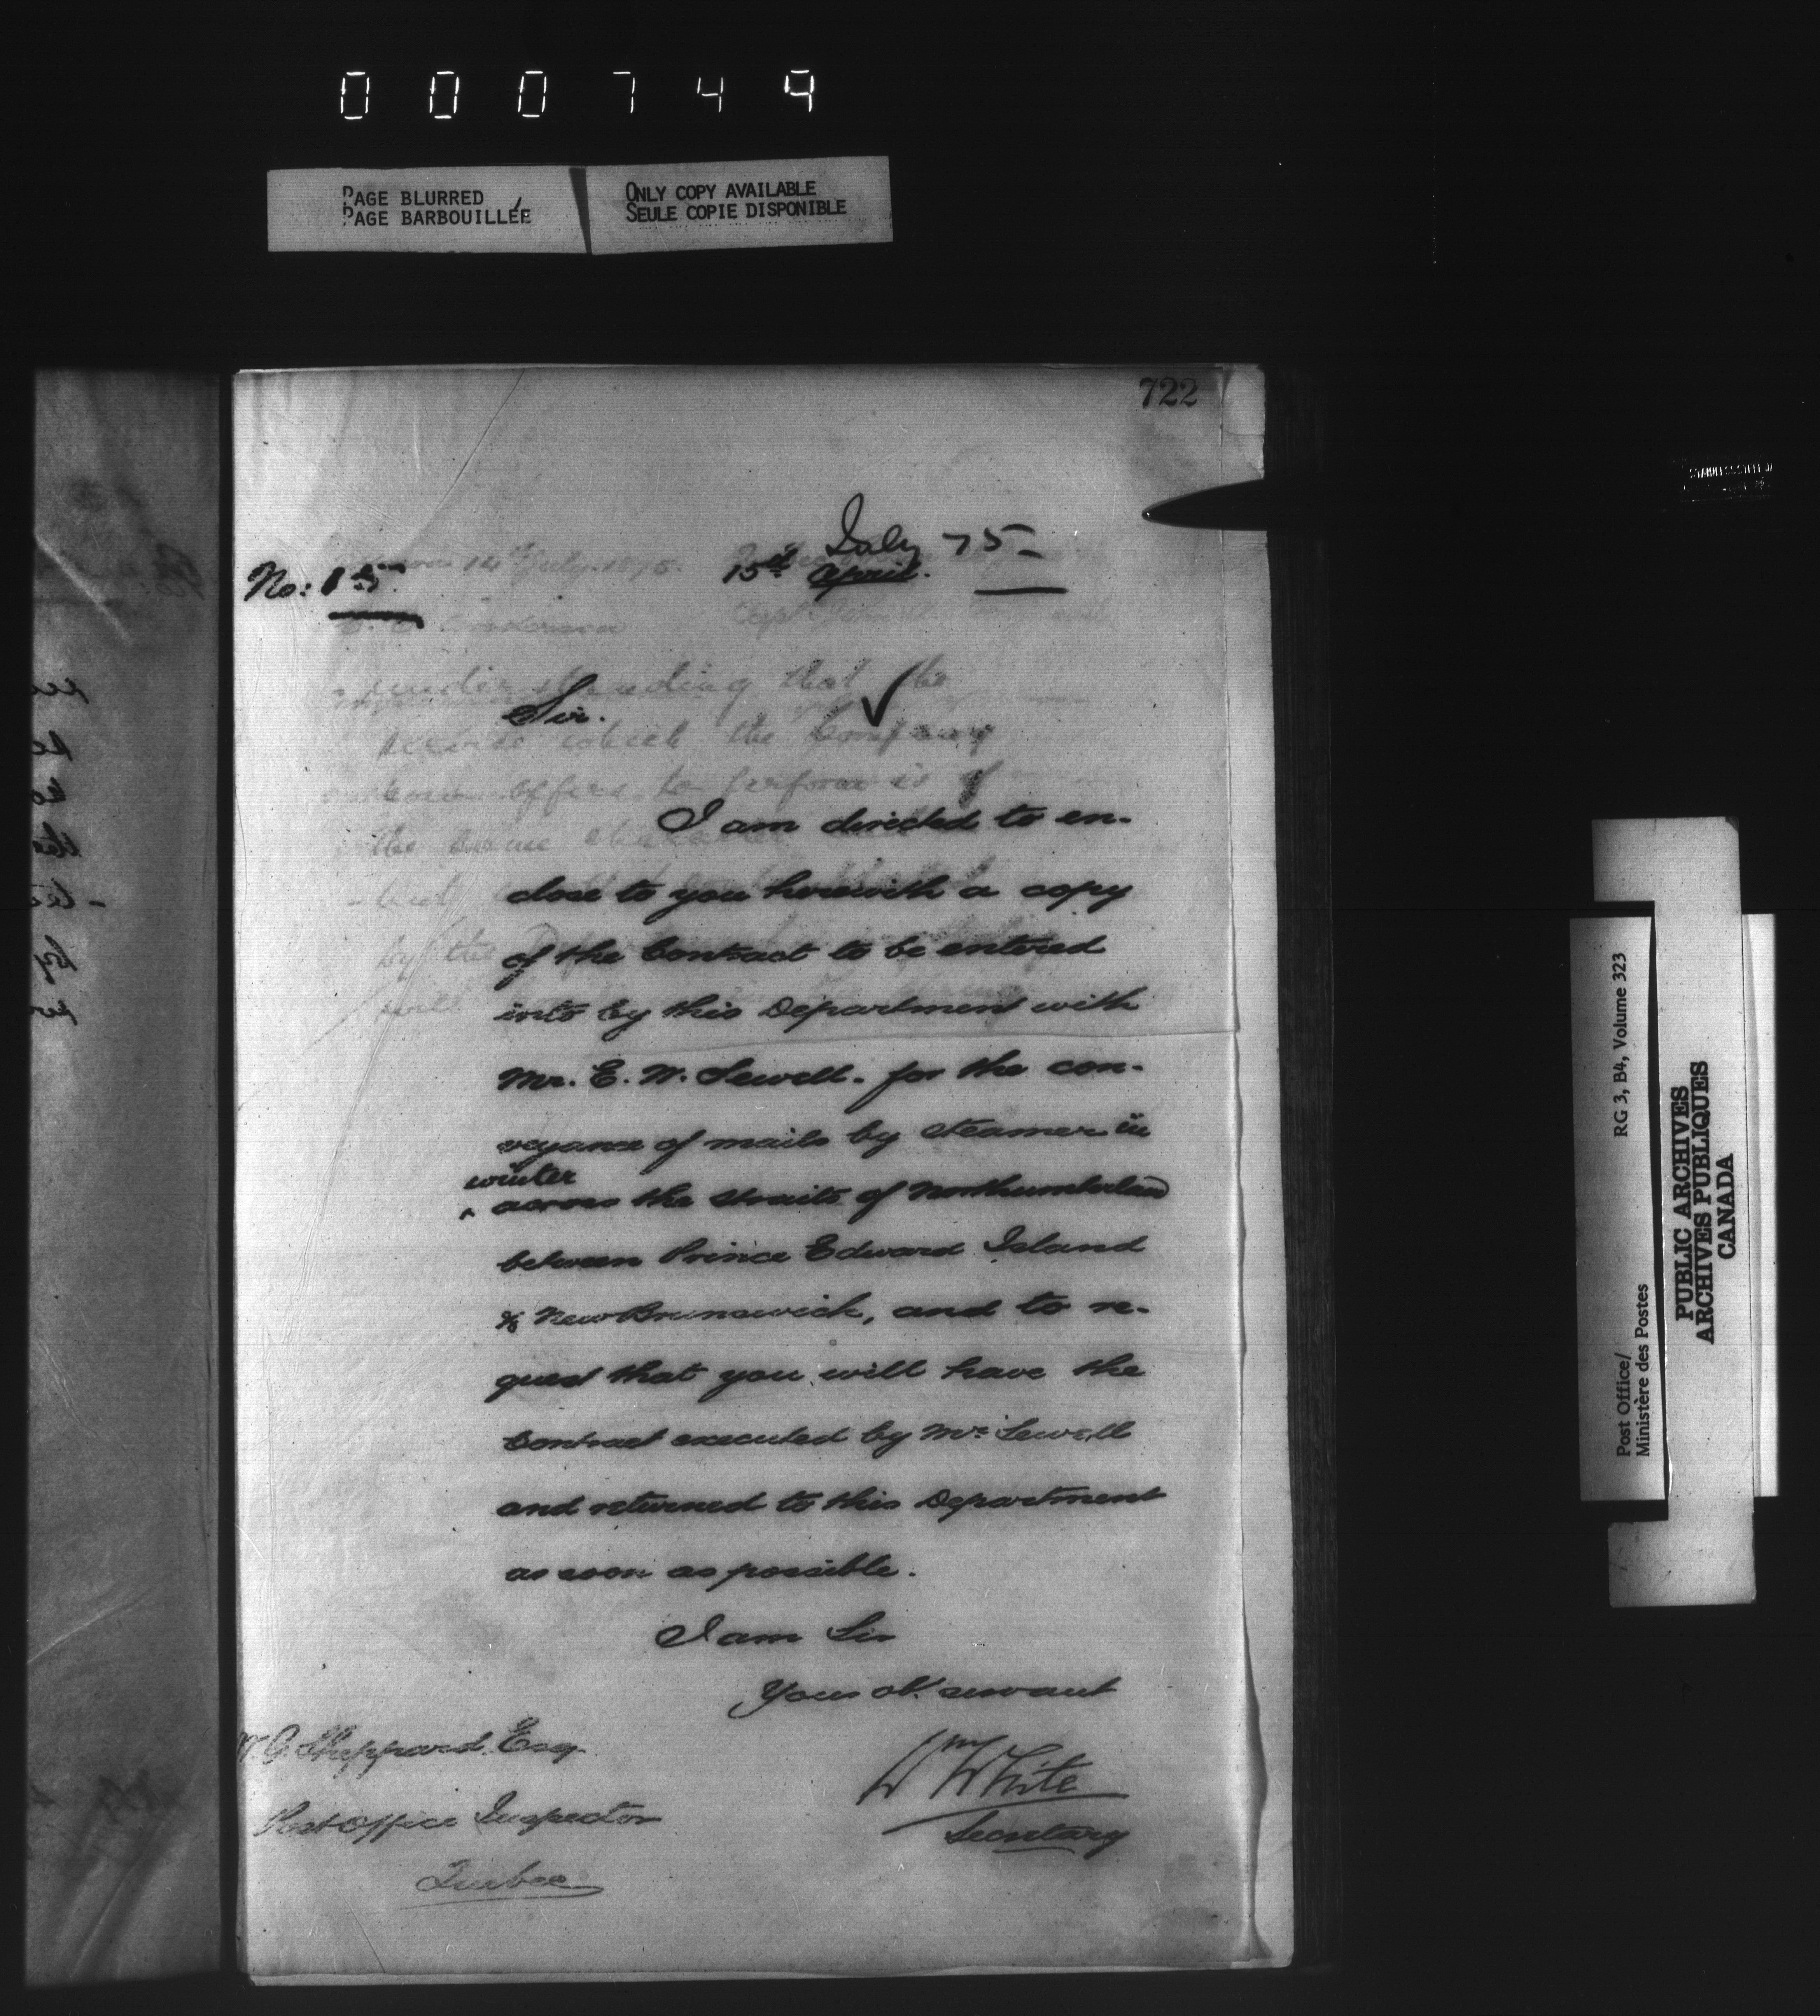 000749
PAGE BLURRED
PAGE BARBOUILLÉE
ONLY COPY AVAILABLE
SEULE COPIE DISPONIBLE
722
July 75-
No: 15th April.
Sir.
I am directed to en-
close to you herewith a copy
of the Contract to be entered
into by this Department with
Mr. E. W. Sewell. for the con-
veyance of mails by steamer in
winter
^ across the straits of Northumberland
between Prince Edward Island
& New Brunswick, and to re-
quest that you will have the
Contract executed by Mr. Sewell
and returned to this Department
as soon as possible.
I am Sir
Your obt. servant
Wm White
Secretary
G. Sheppard Esq.
Post Office Inspector
Quebec
RG 3, B4, Volume 323
Post Office/
Ministère des Postes
PUBLIC ARCHIVES
ARCHIVES PUBLIQUES
CANADA